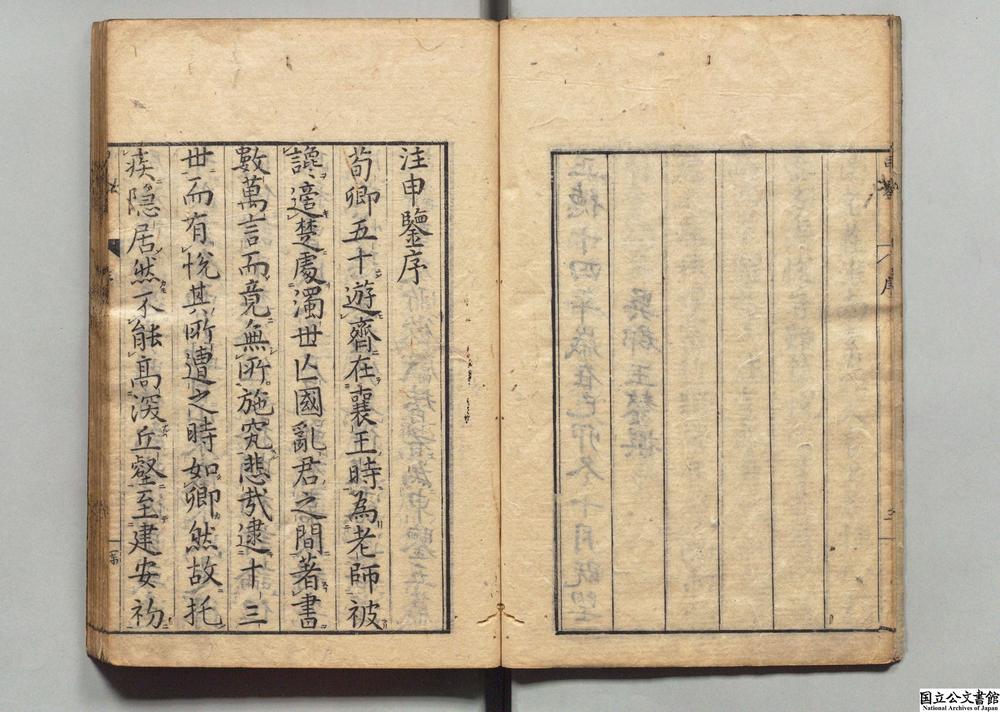 注申鑒序
荀卿五十遊齊在襄王時為老師被
讒適楚處濁世亾國亂君之間著書
數萬言而竟無所施究悲哉逮十三
世而有悅其所遭之時如卿然故托
疾隱居然不能髙深丘壑至建安初
国立公文書館
National Archives of Japan